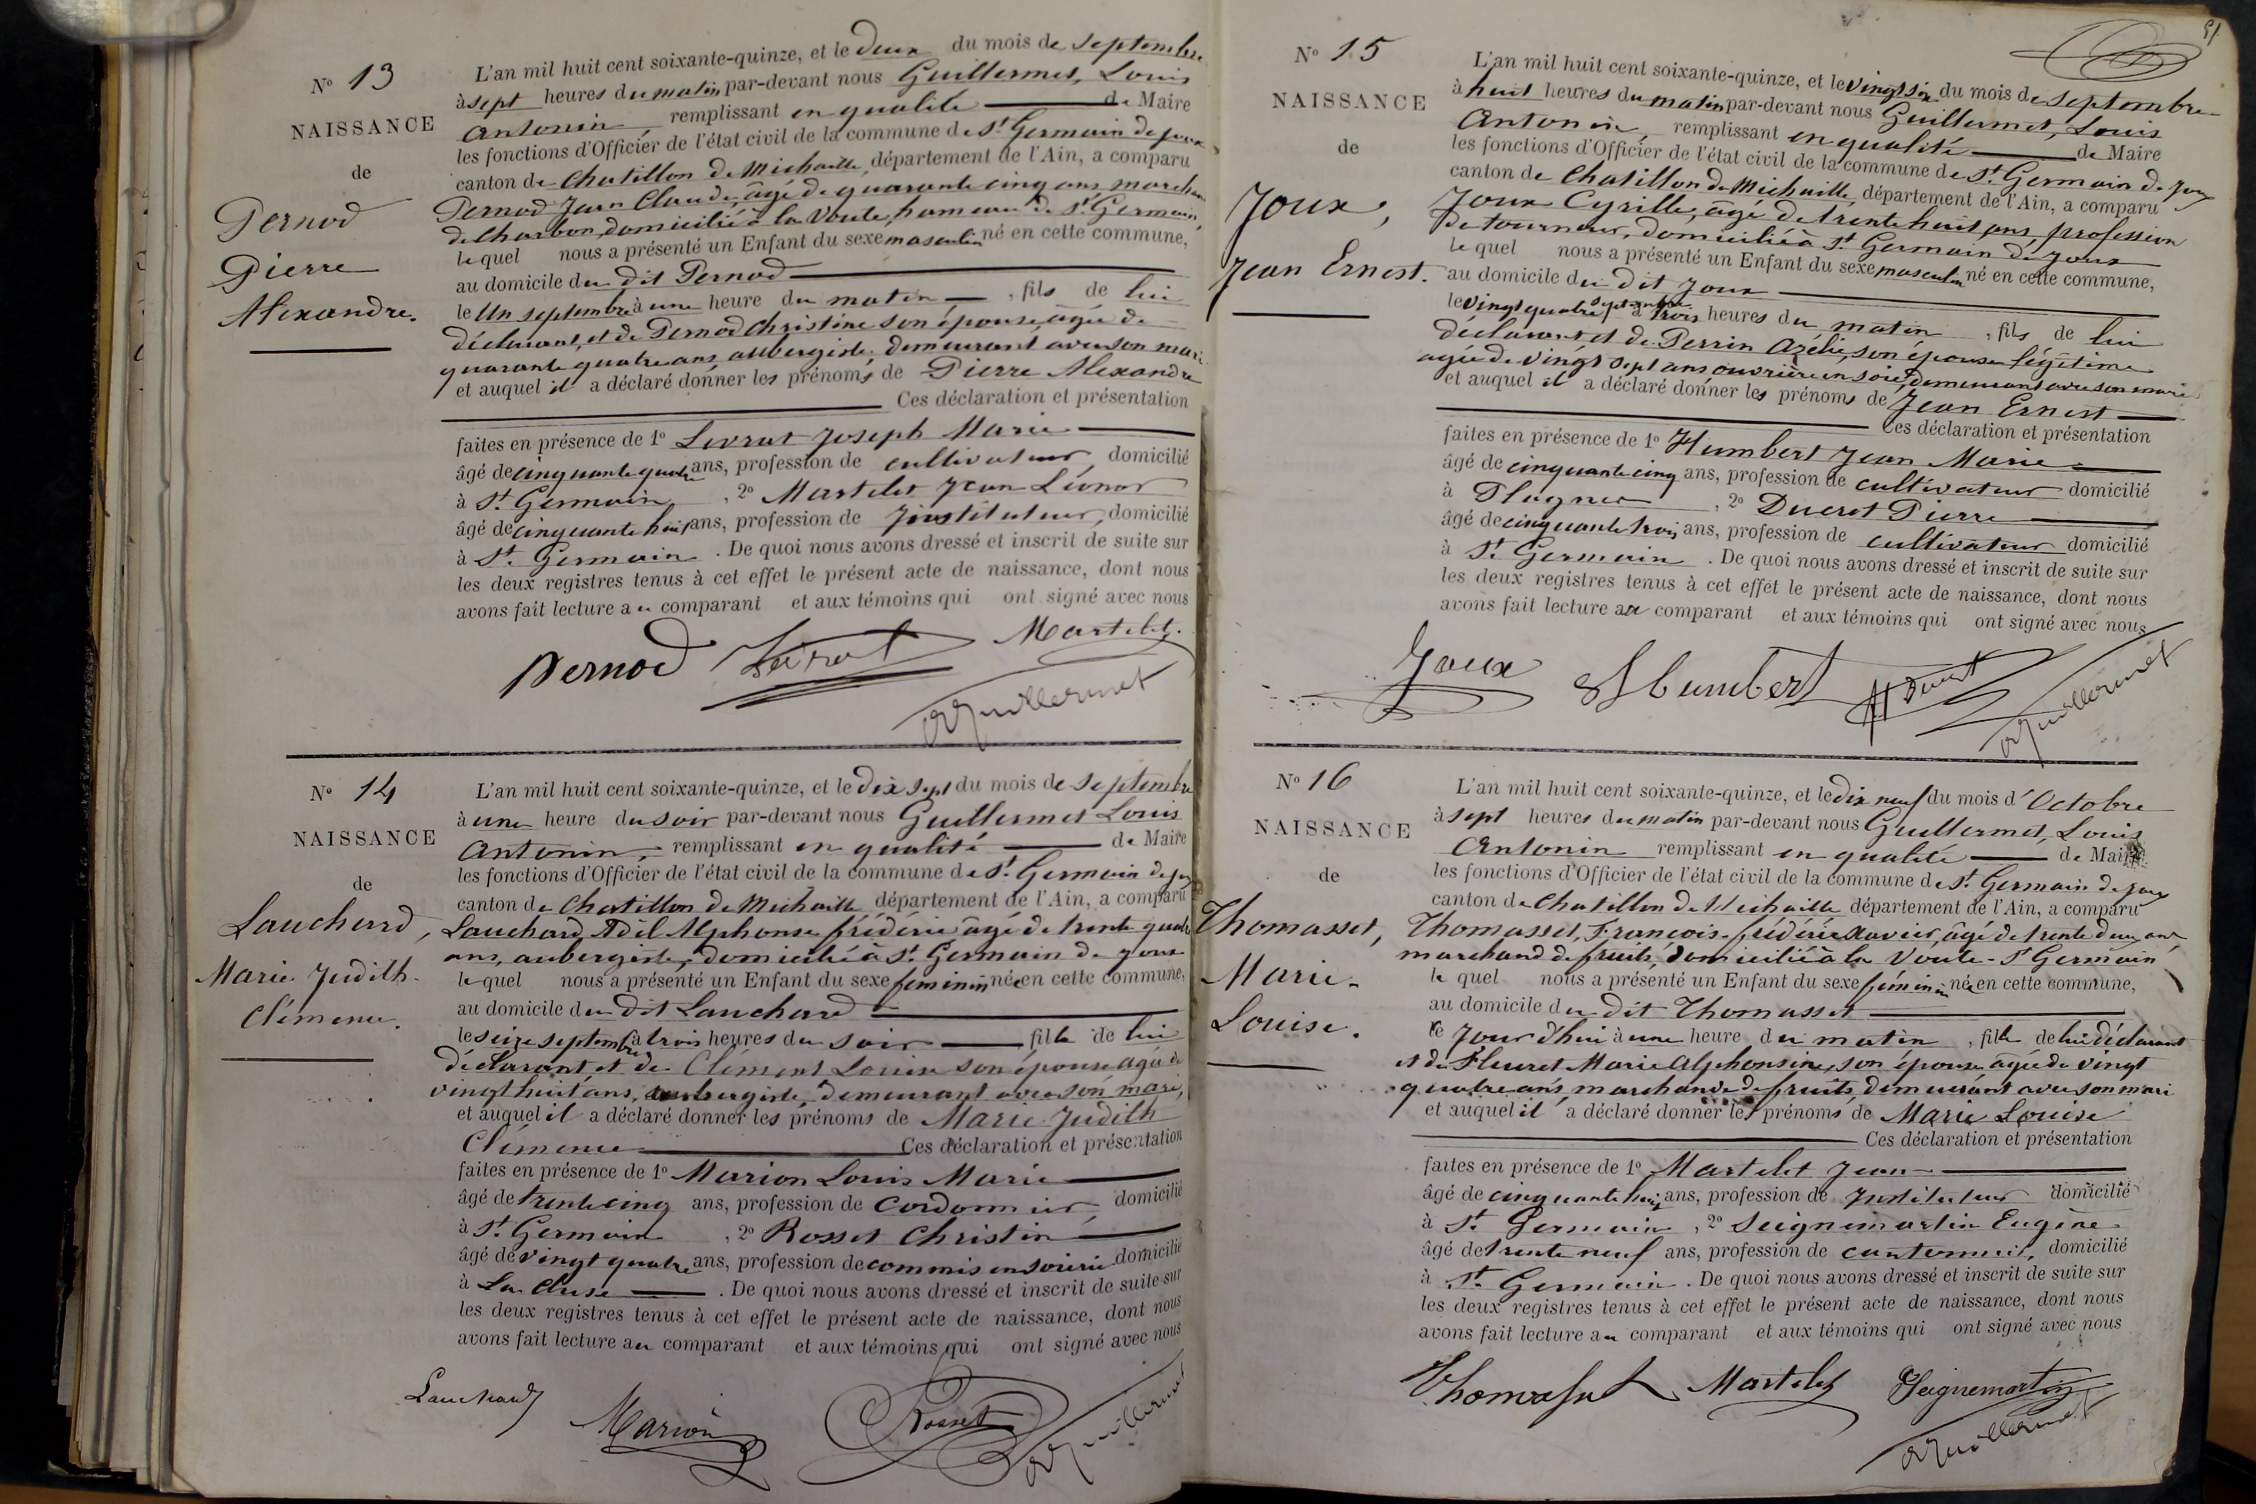 N° 13
NAISSANCE
de
Pernod
Pierre
Alexandre.
L'an mil huit cent soixante-quinze, et le deux du mois de septembre
à sept heures du matin par-devant nous Guillermet, Louis
Antonin, remplissant en qualité de Maire
les fonctions d'Officier de l'état civil de la commune de St Germain de Joux
canton de Chatillon de Michaille, département de l'Ain, a comparu
Pernod Jean Claude, âgé de quarante cinq ans, marchand
de Charbon, domicilié à la Voute, hameau de St Germain,
lequel nous a présenté un Enfant du sexe masculin né en cette commune,
au domicile du dit Pernod
le Un septembre à une heure du matin, fils de lui
déclarant, et de Pernod Christine son épouse, âgée de
quarante quatre ans, aubergiste, demeurant avec son mari
et auquel il a déclaré donner les prénoms de Pierre Alexandre
Ces déclaration et présentation
faites en présence de 1° Levrat Joseph Marie
âgé de cinquante quatre ans, profession de cultivateur domicilié
à St Germain, 2° Martelet Jean Léonor
âgé de cinquante huit ans, profession de Instituteur, domicilié
à St Germain. De quoi nous avons dressé et inscrit de suite sur
les deux registres tenus à cet effet le présent acte de naissance, dont nous
avons fait lecture au comparant et aux témoins qui ont signé avec nous
Pernod Levrat Martelet
Guillermet
N° 14
NAISSANCE
de
Lauchard,
Marie Judith
Clémence.
L'an mil huit cent soixante-quinze, et le dix sept du mois de septembre
à une heure du soir par-devant nous Guillermet Louis
Antonin, remplissant en qualité de Maire
les fonctions d'Officier de l'état civil de la commune de St Germain de Joux
canton de Chatillon de Michaille département de l'Ain, a comparu
Lauchard Adil Alphonse frédéric âgé de trente quatre
ans, aubergiste, domicilié à St Germain de Joux
lequel nous a présenté un Enfant du sexe féminin née en cette commune,
au domicile du dit Lauchard
le seize septembre à trois heures du soir, fille de lui
déclarant et de Clément Louise son épouse agée de
vingt huit ans, aubergiste, demeurant avec son mari,
et auquel il a déclaré donner les prénoms de Marie Judith
Clémence Ces déclaration et présentation
faites en présence de 1° Marion Louis Marie
âgé de trente cinq ans, profession de Cordonnier, domicilié
à St Germain, 2° Rosset Christin
âgé de vingt quatre ans, profession de commis en soierie domicilié
à La Cluse. De quoi nous avons dressé et inscrit de suite sur
les deux registres tenus à cet effet le présent acte de naissance, dont nous
avons fait lecture au comparant et aux témoins qui ont signé avec nous
Lauchard Marion Rosset Guillermet
51
N° 15
NAISSANCE
de
Joux,
Jean Ernest.
L'an mil huit cent soixante-quinze, et le vingt six du mois de septembre
à huit heures du matin par-devant nous Guillermet, Louis
Antonin, remplissant en qualité de Maire
les fonctions d'Officier de l'état civil de la commune de St Germain de Joux
canton de Chatillon de Michaille, département de l'Ain, a comparu
Joux Cyrille, âgé de trente huit ans, profession
De tourneur, domicilié à St Germain de Joux
lequel nous a présenté un Enfant du sexe masculin né en cette commune,
au domicile du dit Joux
le vingt quatre septembre à trois heures du matin, fils de lui
déclarant et de Perrin Azélie, son épouse légitime
agée de vingt sept ans ouvrière en soie, demeurant avec son mari
et auquel il a déclaré donner les prénoms de Jean Ernest
Ces déclaration et présentation
faites en présence de 1° Humbert Jean Marie
âgé de cinquante cinq ans, profession de cultivateur domicilié
à Plagnes, 2° Ducret Pierre
âgé de cinquante trois ans, profession de cultivateur domicilié
à St Germain. De quoi nous avons dressé et inscrit de suite sur
les deux registres tenus à cet effet le présent acte de naissance, dont nous
avons fait lecture au comparant et aux témoins qui ont signé avec nous
Joux Humbert Ducret Guillermet
N° 16
NAISSANCE
de
Thomasset,
Marie
Louise.
L'an mil huit cent soixante-quinze, et le dix neuf du mois d'Octobre
à sept heures du matin par-devant nous Guillermet, Louis
Antonin remplissant en qualité de Maire
les fonctions d'Officier de l'état civil de la commune de St Germain de Joux
canton de Chatillon de Michaille département de l'Ain, a comparu
Thomasset, François-frédéric Xavier, âgé de trente deux ans
marchand de fruits, domicilié à la Voute-St Germain,
lequel nous a présenté un Enfant du sexe féminin née en cette commune,
au domicile du dit Thomasset
le Jour d'hui à une heure du matin, fille de lui déclarant
et de Fleuret Marie Alphonsine, son épouse, âgée de vingt
quatre ans, marchande de fruits, demeurant avec son mari
et auquel il a déclaré donner les prénoms de Marie Louise
Ces déclaration et présentation
faites en présence de 1° Martelet Jean
âgé de cinquante huit ans, profession de Instituteur domicilié
à St Germain, 2° Seignemartin Eugène
âgé de trente neuf ans, profession de cantonnier, domicilié
à St Germain. De quoi nous avons dressé et inscrit de suite sur
les deux registres tenus à cet effet le présent acte de naissance, dont nous
avons fait lecture au comparant et aux témoins qui ont signé avec nous
Thomasset Martelet Seignemartin
Guillermet